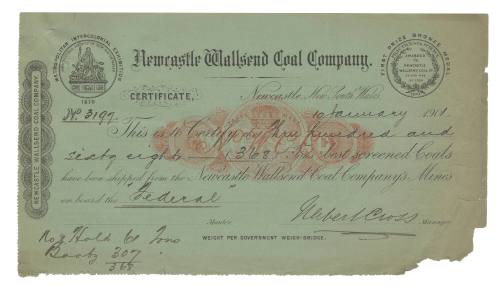 METROPOLITAN INTERCOLONIAL EXHIBITION
1870
Newcastle Wallsend Coal Company.
FIRST PRIZE BRONZE MEDAL
AWARDED
TO
NEWCASTLE
WALLSEND COAL Co
CERTIFICATE,
Newcastle, New South Wales,
No. 3197
10 January 1901.
This is to Certify that Three hundred and
sixty eight (368) Tons best screened Coals
have been shipped from the Newcastle Wallsend Coal Company's Mines
on board the "Federal"
Master
Manager
No 2 Hold 61 Tons
WEIGHT PER GOVERNMENT WEIGH-BRIDGE.
307
368
NEWCASTLE WALLSEND COAL COMPANY.